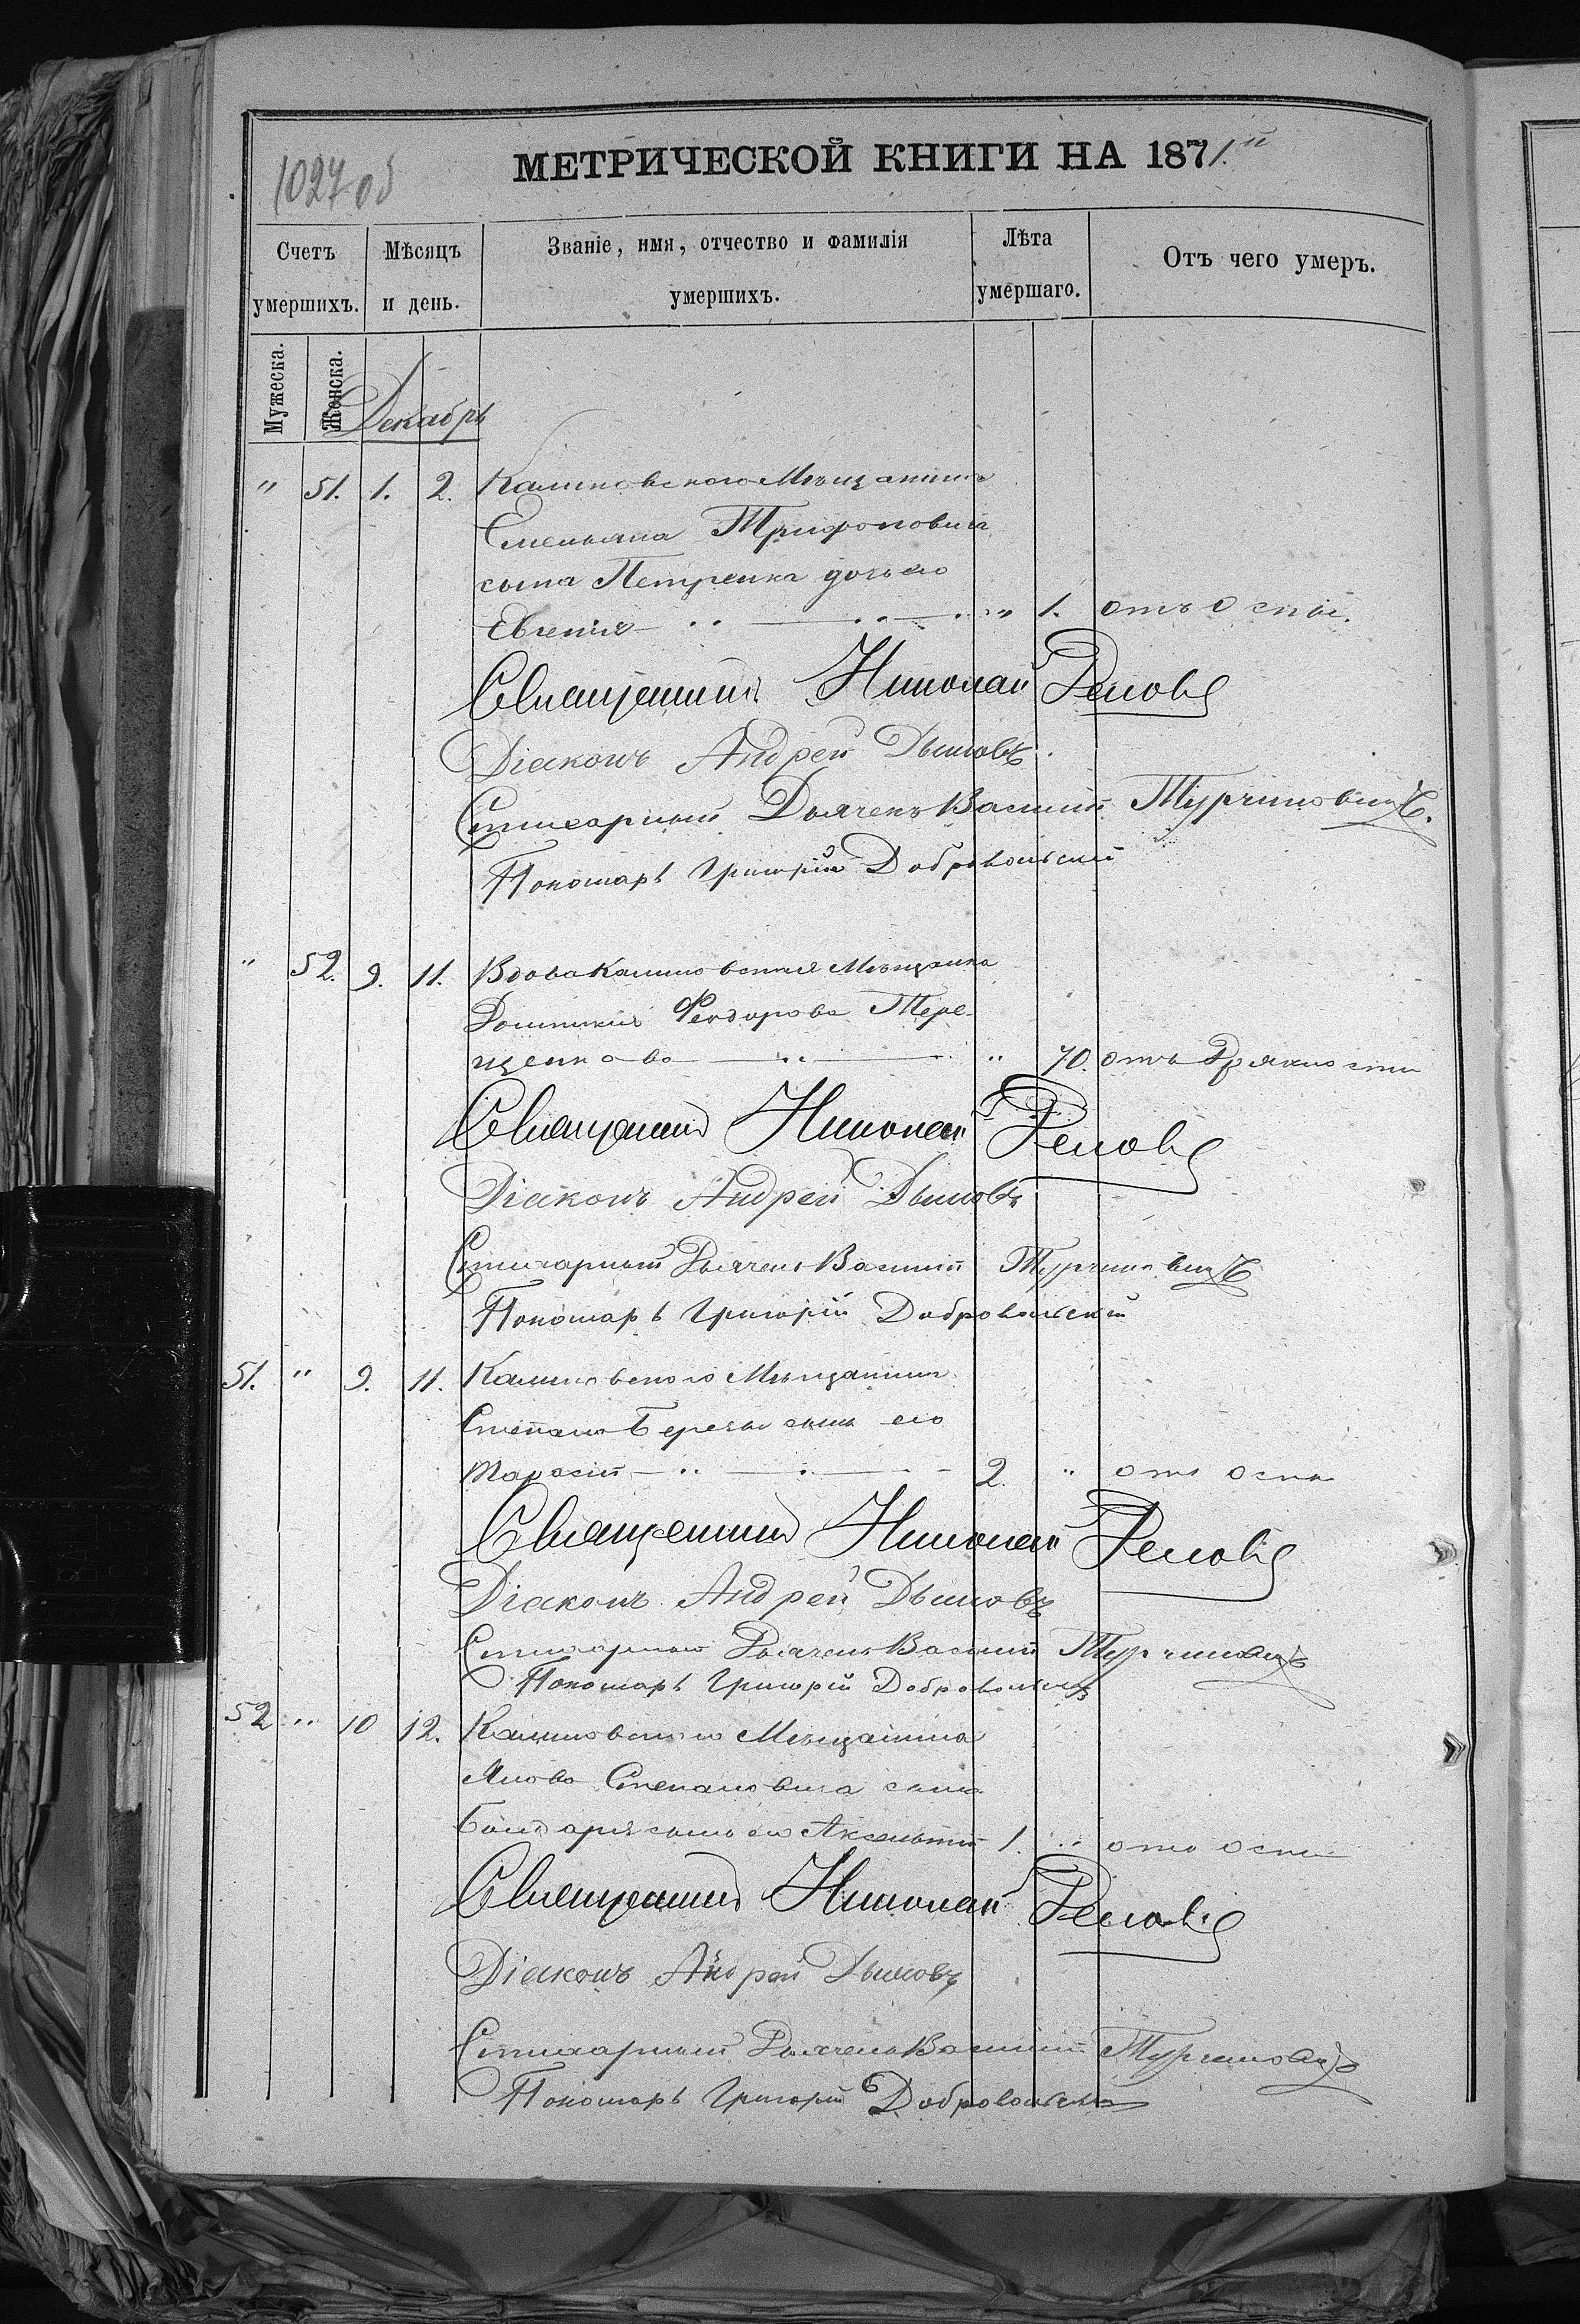 1027 об
МЕТРИЧЕСКОЙ КНИГИ НА 1871.й
Счетъ умершихъ.
Мѣсяцъ и день.
Званіе, имя, отчество и фамилія умершихъ.
Лѣта умершаго.
Отъ чего умеръ.
Мужеска.
Женска.
Декабрь
" 51. 1. 2. Калиновского Мѣщанина
Емельяна Трифоновича
сына Петренка дочь его
Евгенія " 1. отъ Оспы.
Священникъ Николай
Діаконъ Андрей Дымовъ
Стихарный Дьячекъ Василий Турчиновичъ.
Пономарь Григорій Добровольский
" 52. 9. 11. Вдова Калиновская Мѣщанка
Домникия Феодорова Тере-
щенкова " 70. отъ Дряхлости
Священникъ Николай
Діаконъ Андрей Дымовъ
Стихарный Дьячекъ Василий Турчиновичъ
Пономарь Григорій Добровольский
51. " 9. 11. Калиновского Мѣщанина
Степана Березы сынъ его
Тарасій 2. " отъ оспы
Священникъ Николай
Діаконъ Андрей Дымовъ
Стихарный Дьячекъ Василий Турчиновичъ
Пономарь Григорій Добровольский
52 " 10 12. Калиновского Мѣщанина
Якова Степановича сына
Бондаря сынъ его Аксентий 1. " отъ оспы
Священникъ Николай
Діаконъ Андрей Дымовъ
Стихарный Дьячекъ Василий Турчиновичъ
Пономарь Григорій Добровольский